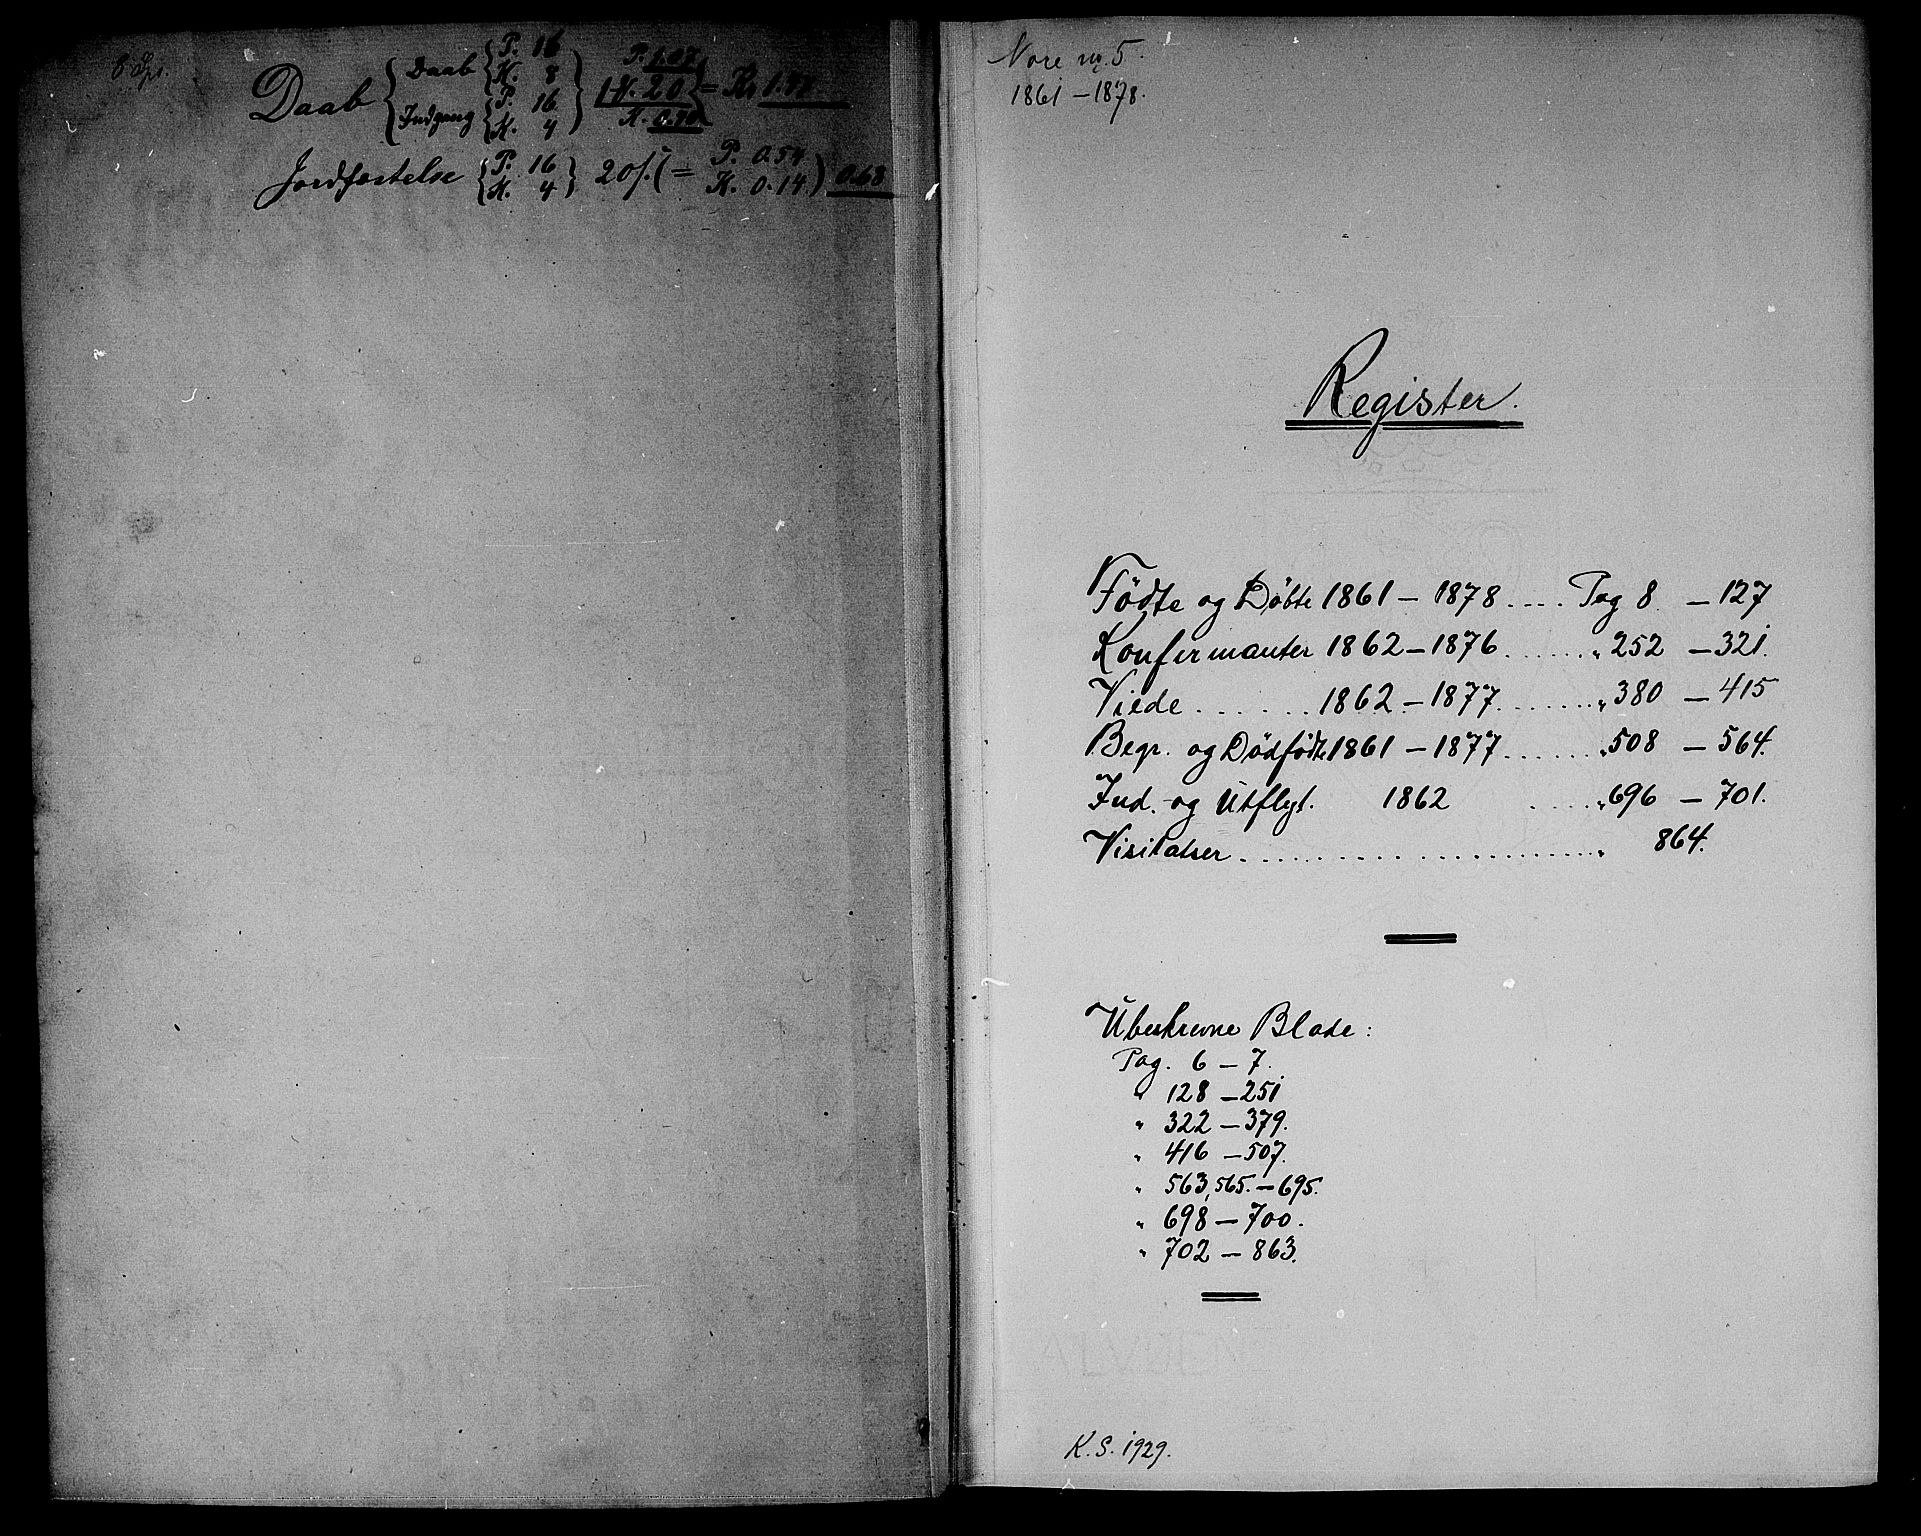 Daab { Daab { P. 16 K. 8 Indgang { P. 16 K. 4 } P. 1.07 1 V. 20 K. 0.40 } = Kr 1.47
Jordfæstelse { P. 16 K. 4 } 20 /. ( = P. 0.54 K. 0.14 ) 0.68
Nore nr. 5.
1861 - 1878.
Register.
Födte og Döbte 1861 - 1878 .... Pag 8. - 127
Konfirmanter 1862 - 1876 ...... " 252 - 321.
Viede ...... 1862 - 1877 ....... " 380 - 415
Begr. og Dödfödte 1861 - 1877 ...... " 508 - 564.
Ind. og Utflyt. 1862 ..... " 696 - 701.
Visitatser ........................ " 864.
Ubeskrevne Blade:
Pag. 6 - 7.
" 128 - 251
" 322 - 379.
" 416 - 507.
" 563, 565. - 695.
" 698 - 700.
" 702 - 863.
K. S. 1929.